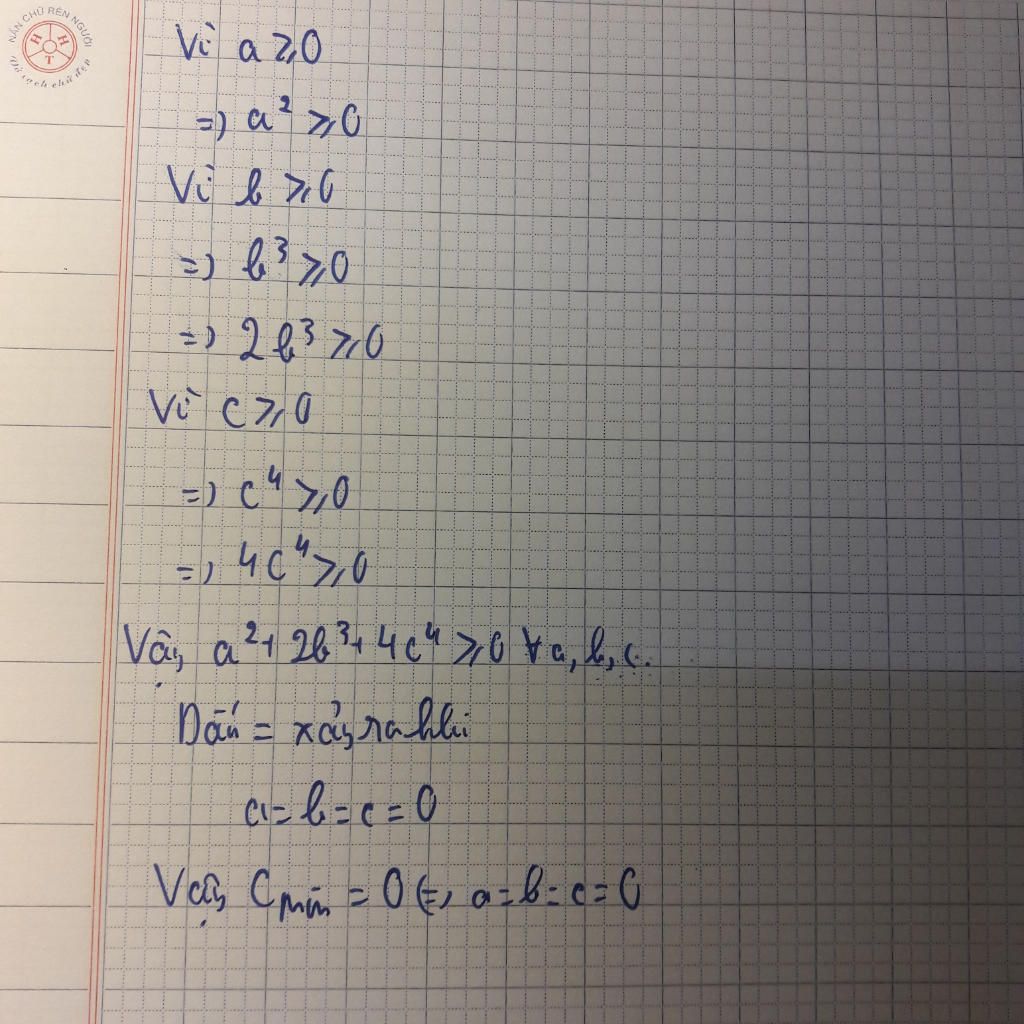 NẮN CHỮ RÈN NGƯỜI
H H T
Vở sạch chữ đẹp
Vì a ⩾ 0
=> a² ⩾ 0
Vì b ⩾ 0
=> b³ ⩾ 0
=> 2b³ ⩾ 0
Vì c ⩾ 0
=> c⁴ ⩾ 0
=> 4c⁴ ⩾ 0
Vậy a² + 2b³ + 4c⁴ ⩾ 0 ∀ a, b, c.
Dấu = xảy ra khi
a = b = c = 0
Vậy Cmin = 0 <=> a = b = c = 0